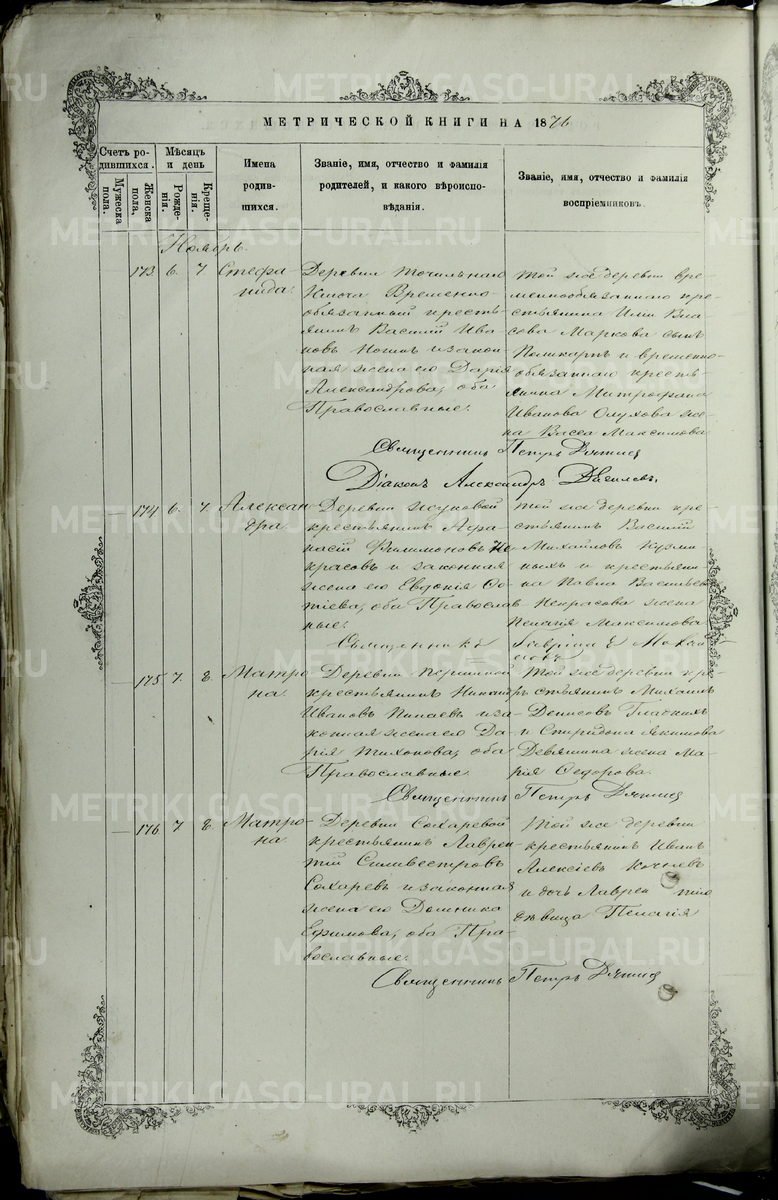 МЕТРИЧЕСКОЙ КНИГИ НА 1876
Счетъ ро-
дившихся.
Мужеска
пола.
Женска
пола.
Мѣсяцъ
и день
Рожде-
нія.
Креще-
нія.
Имена
родив-
шихся.
Званіе, имя, отчество и фамилія
родителей, и какого вѣроиспо-
вѣданія.
Званіе, имя, отчество и фамилія
воспріемниковъ.
Ноябрь.
173 6. 7. Стефа-
нида.
Деревни Точильнаго
Ключа Временно-
обязанный кресть-
янинъ Василій Ива-
новъ и закон-
ная жена его Дарія
Александрова, оба
Православные.
Той же деревни вре-
меннообязаннаго кре-
стьянина Ильи Вла-
сова Маркова сынъ
Поликарпъ и временно-
обязаннаго кресть-
янина Митрофана
Иванова Олухова же-
на Васса Максимова
Священникъ Петръ
Діаконъ Александръ
174 6. 7. Алексан-
дра.
Деревни Жуковой
крестьянинъ Афа-
насій Филимоновъ Не-
красовъ и законная
жена его Евдокія Фо-
тіева, оба Православ-
ные.
Той же деревни кре-
стьянинъ Василій
Михайловъ Кузми-
ныхъ и крестьяни-
на Павла Васильев
Некрасова жена
Пелагія Максимова
Священникъ Гавріилъ
175 7. 8. Матро-
на.
Деревни Першиной
крестьянинъ Никандръ
Ивановъ Пинаевъ и за-
конная жена его Да-
рія Тихонова, оба
Православные.
Той же деревни кре-
стьянинъ Михаилъ
Денисовъ Гладкихъ
и Спиридона Акимова
Девяшина жена Ма-
рія Федорова.
Священникъ Петръ
176 7. 8. Матро-
на.
Деревни Сохаревой
крестьянинъ Лаврен-
тій Силивестровъ
Сохаревъ и законная
жена его Домника
Ефимова, оба Пра-
вославные.
Той же деревни
крестьянинъ Иванъ
Алексіевъ
и дочь Лаврен тія
дѣвица Пелагія
Священникъ Петръ
METRIKI.GASO-URAL.RU